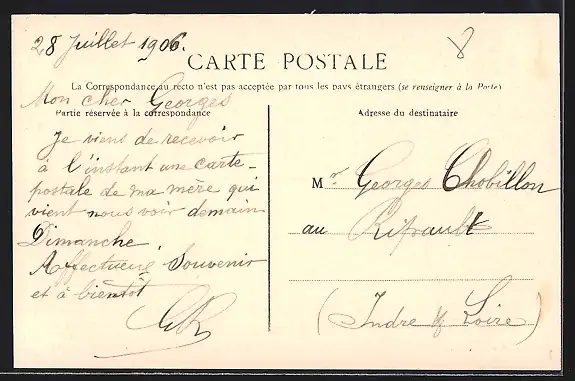 28 Juillet 1906.
CARTE POSTALE
La Correspondance au recto n'est pas acceptée par tous les pays étrangers (se renseigner à la Poste)
Mon cher Georges
Partie réservée à la correspondance
Je viens de recevoir
à l'instant une carte-
postale de ma mère qui
vient nous voir demain
Dimanche.
Affectueux Souvenir
et à bientôt
GR
Adresse du destinataire
Mr Georges Chobillon
au Rifrault
(Indre & Loire)